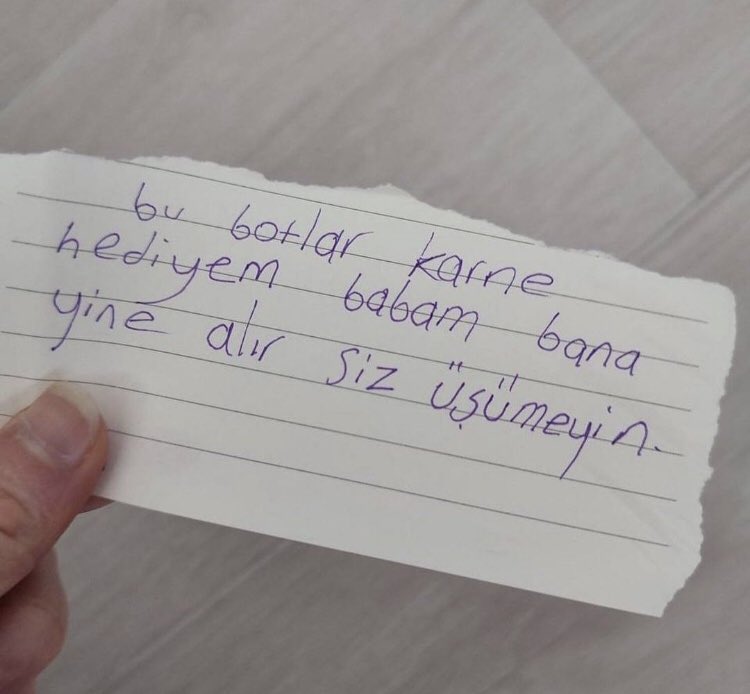 bu botlar karne
hediyem babam bana
yine alır siz üşümeyin.